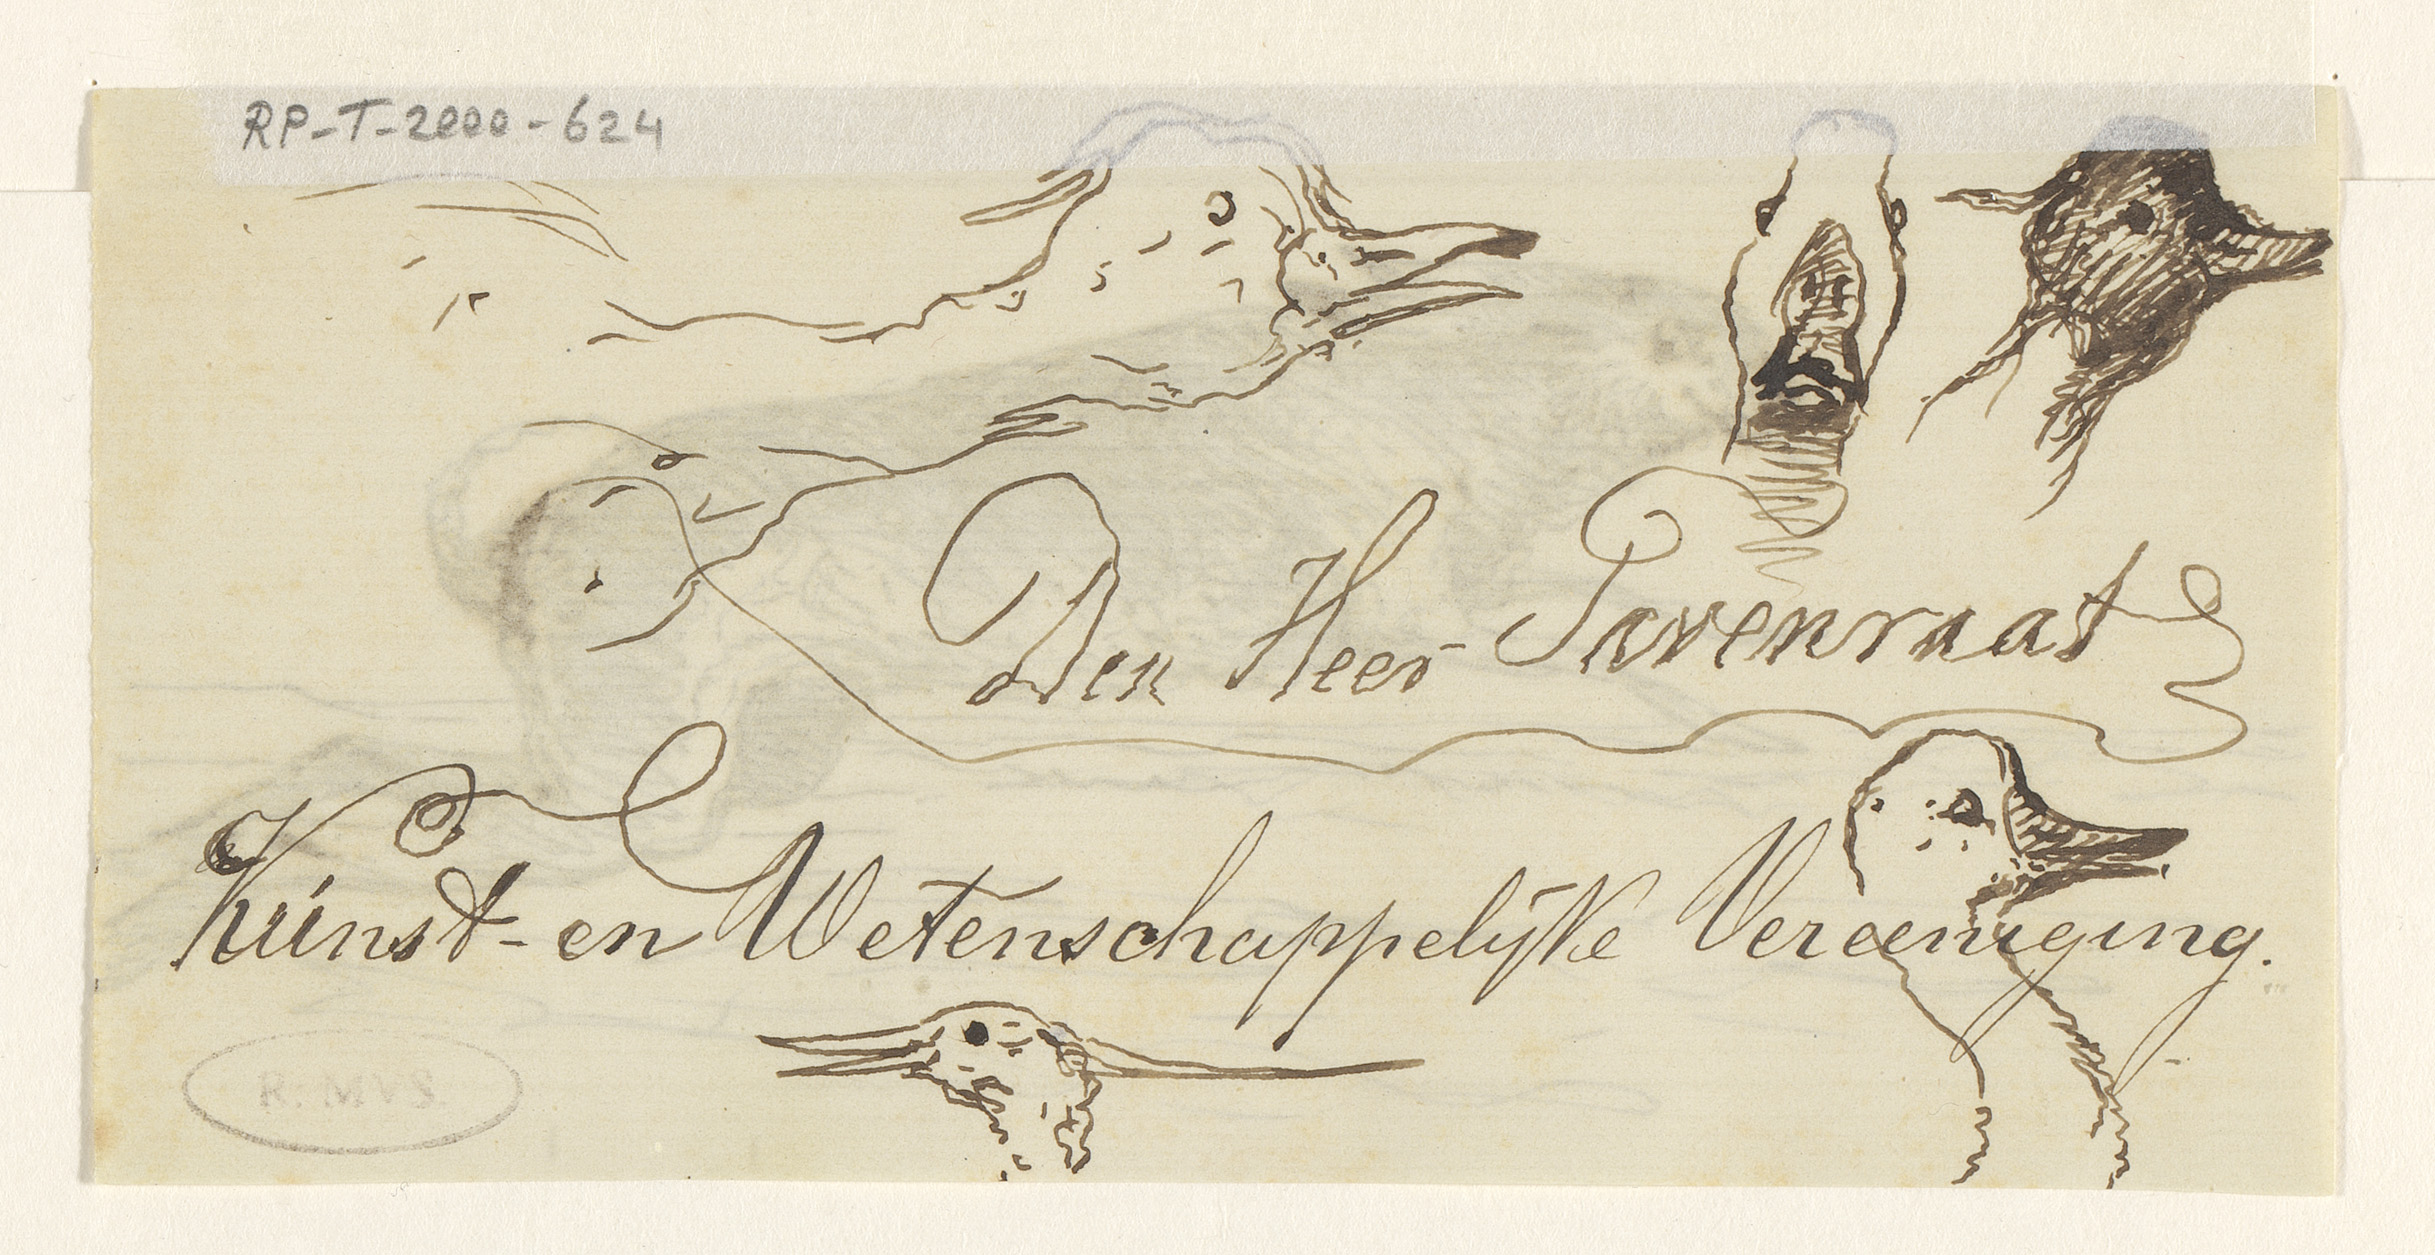 RP-T-2000-624
Den Heer Tavenraat
Kunst- en Wetenschappelijke Vereeniging.
R. MVS.